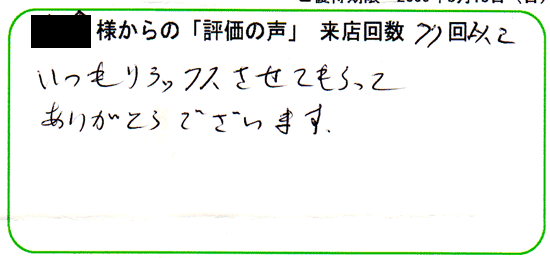 様からの「評価の声」 来店回数 回以上
いつもリラックスさせてもらって
ありがとうございます.